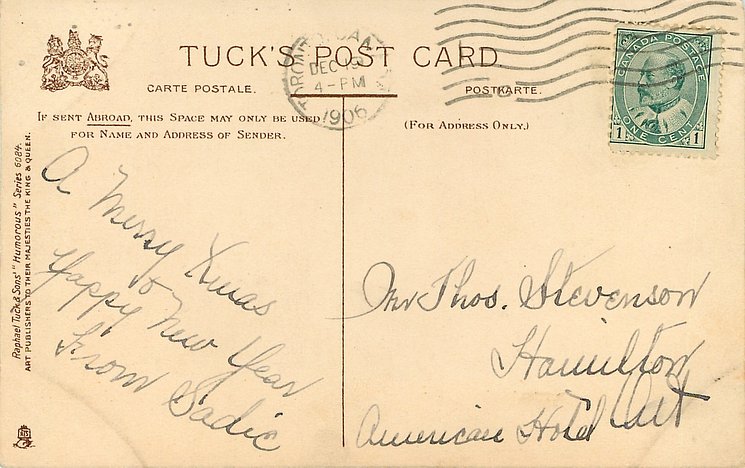 TUCK'S POST CARD
CARTE POSTALE.
POSTKARTE.
IF SENT ABROAD, THIS SPACE MAY ONLY BE USED
FOR NAME AND ADDRESS OF SENDER.
(FOR ADDRESS ONLY.)
DEC
4-PM
1906
CANADA POSTAGE
1 ONE CENT 1
Raphael Tuck & Sons' "Humorous" Series 6084.
ART PUBLISHERS TO THEIR MAJESTIES THE KING & QUEEN.
A Merry Xmas
&
Happy New Year
From Sadie
Mr Thos. Stevenson
Hamilton
Ont
American Hotel